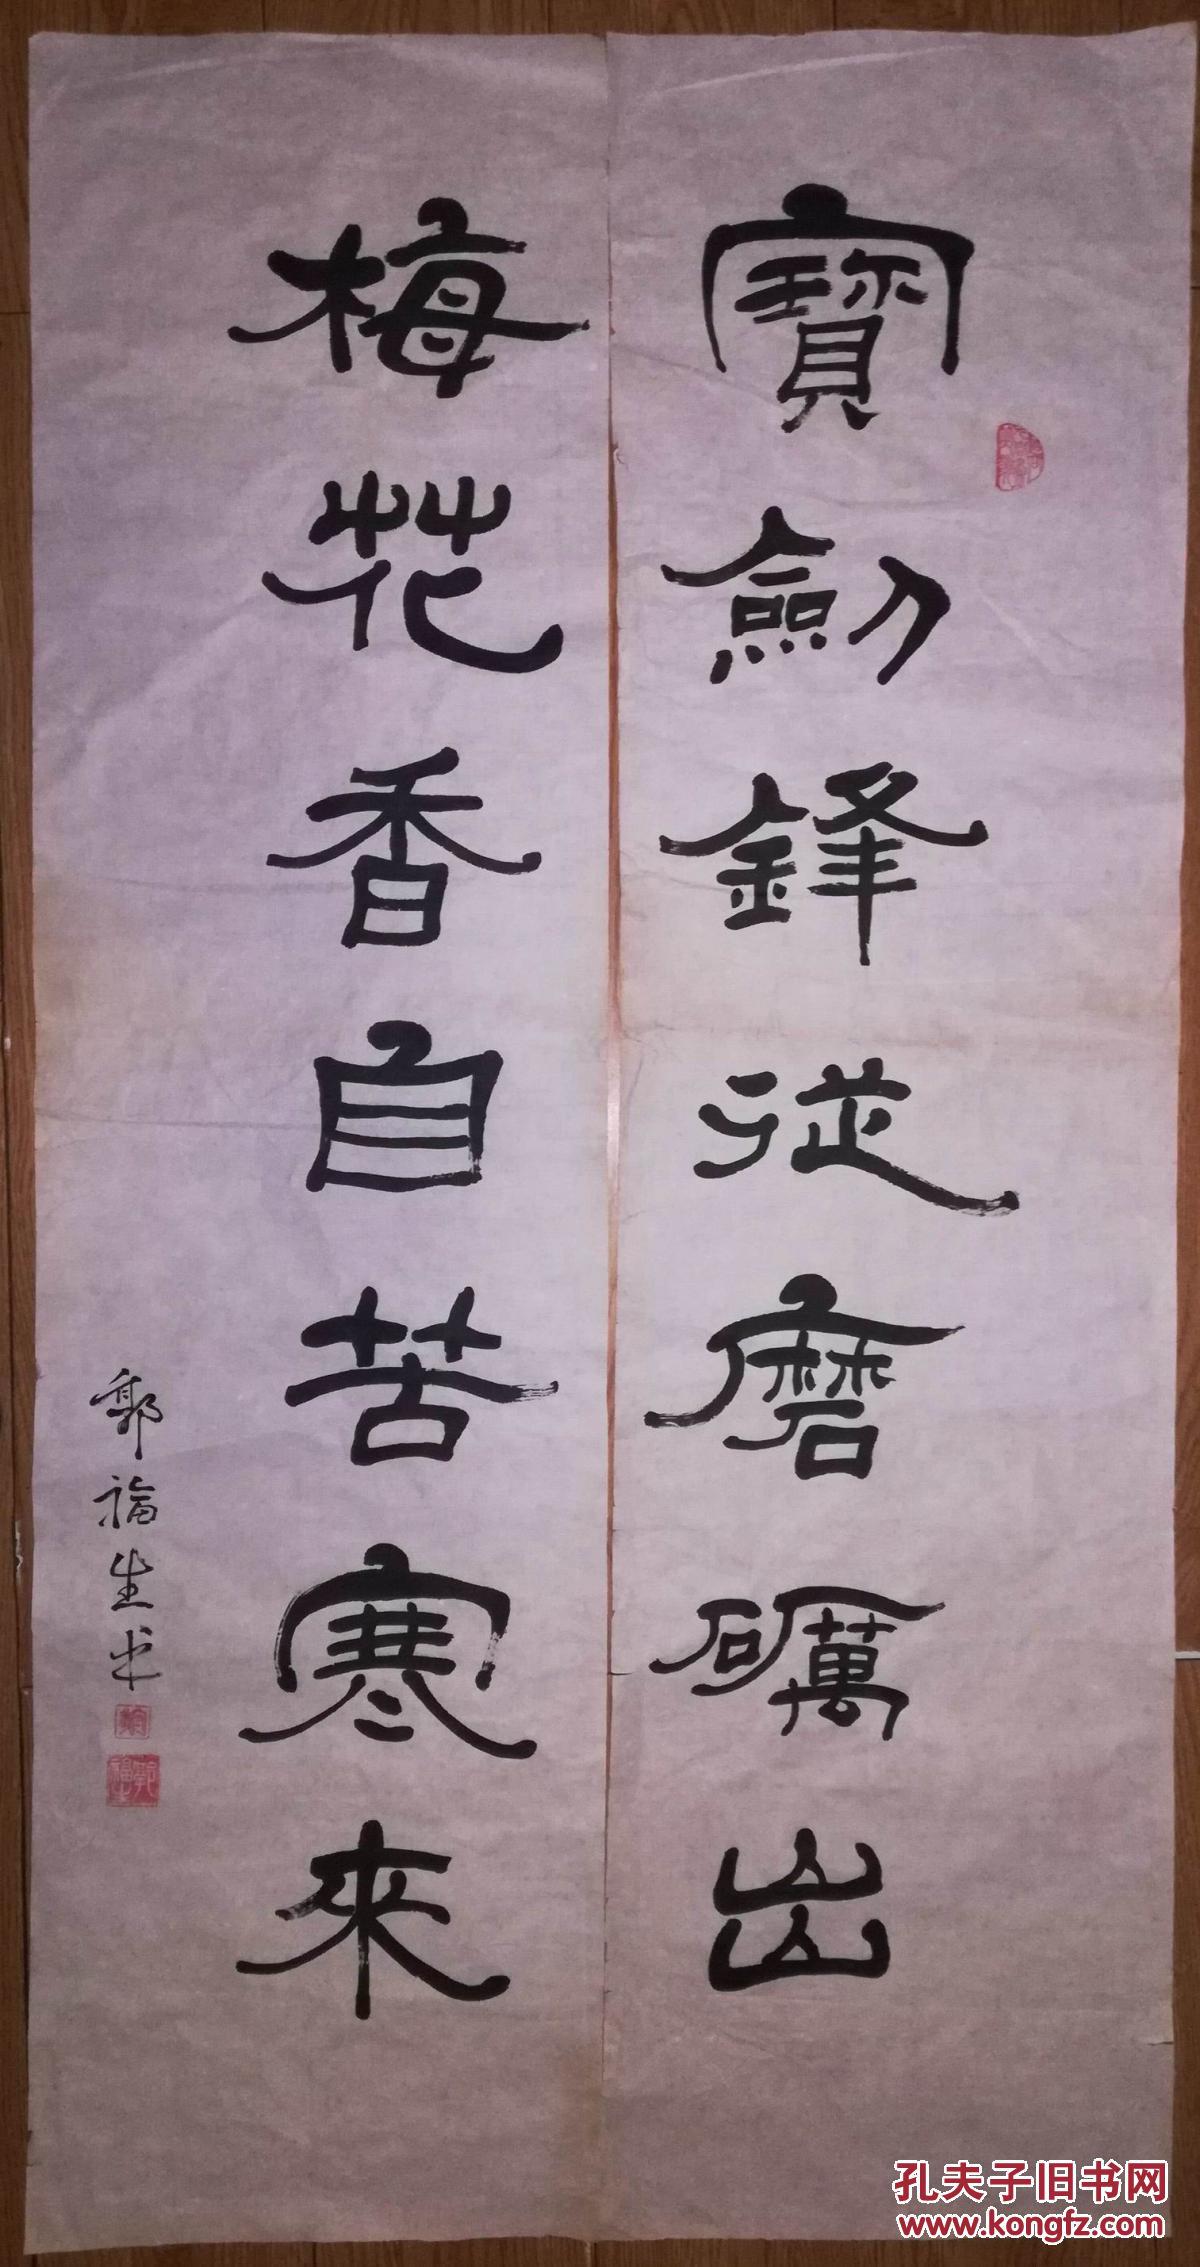 寶劍鋒從磨礪出
梅花香自苦寒來
郭福生书
孔夫子旧书网
www.kongfz.com